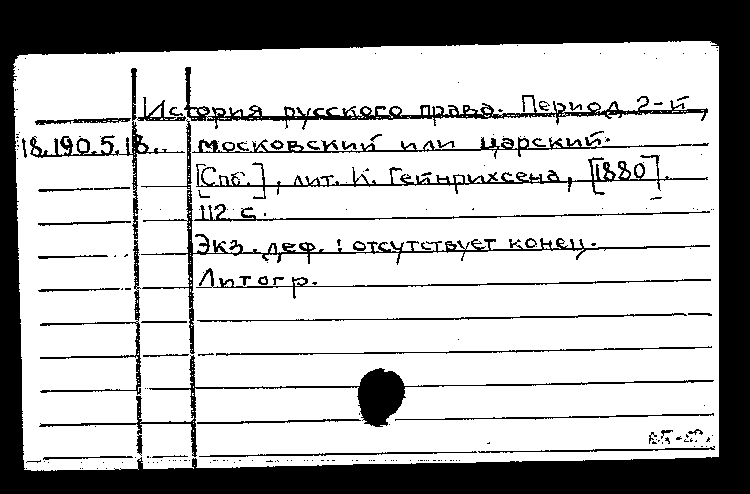 История русского права. Период 2-й,
18.190.5.13. московский или царский.
[Спб.], лит. К. Гейнрихсена, [1880].
112 с.
Экз. деф.: отсутствует конец.
Литогр.